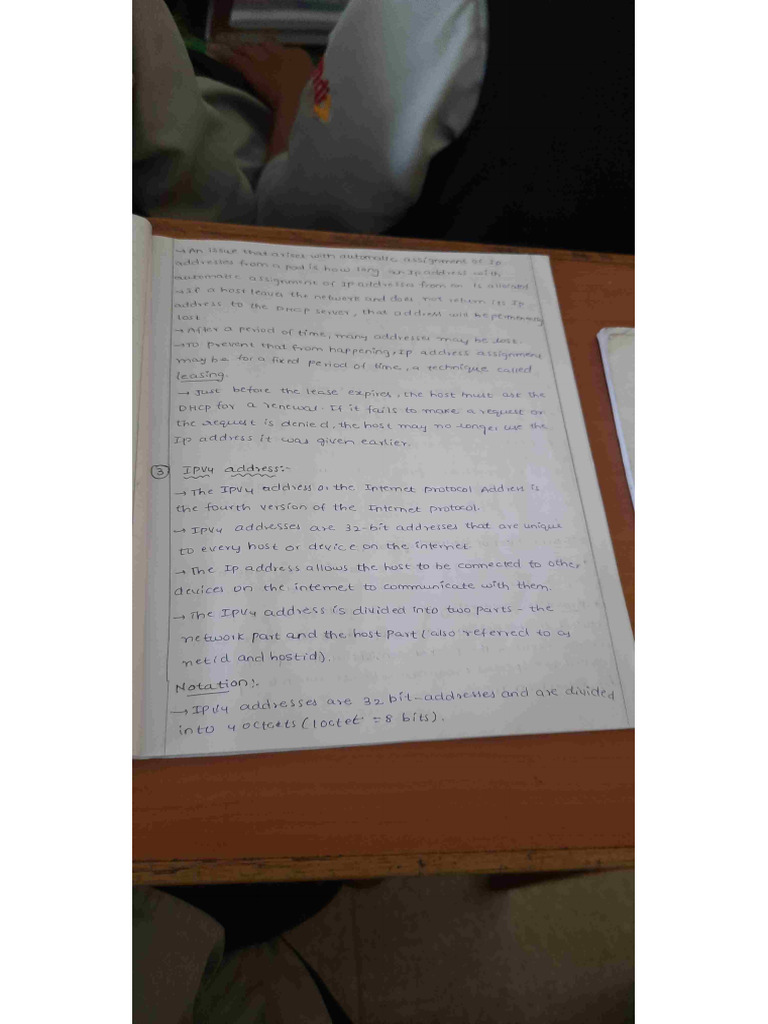 → An issue that arises with automatic assignment of Ip
addresses from a pool is how long an Ip address with
automatic assignment of Ip addresses from on is allowed
→ If a host leaves the network and does not return its Ip
address to the DHCP server, that address will be permanently
lost.
→ After a period of time, many addresses may be lost.
→ To prevent that from happening, Ip address assignment
may be for a fixed period of time, a technique called
leasing.
→ Just before the lease expires, the host must ask the
DHCP for a renewal. If it fails to make a request or
the request is denied, the host may no longer use the
Ip address it was given earlier.
③ IPV4 address:-
→ The IPV4 address or the Internet Protocol Address is
the fourth version of the Internet protocol.
→ IPV4 addresses are 32-bit addresses that are unique
to every host or device on the internet
→ The Ip address allows the host to be connected to other
devices on the internet to communicate with them.
→ The IPV4 address is divided into two parts - the
network part and the host part (also referred to as
netid and hostid).
Notation:-
→ IPV4 addresses are 32 bit-addresses and are divided
into 4 octcets (1octet = 8 bits).